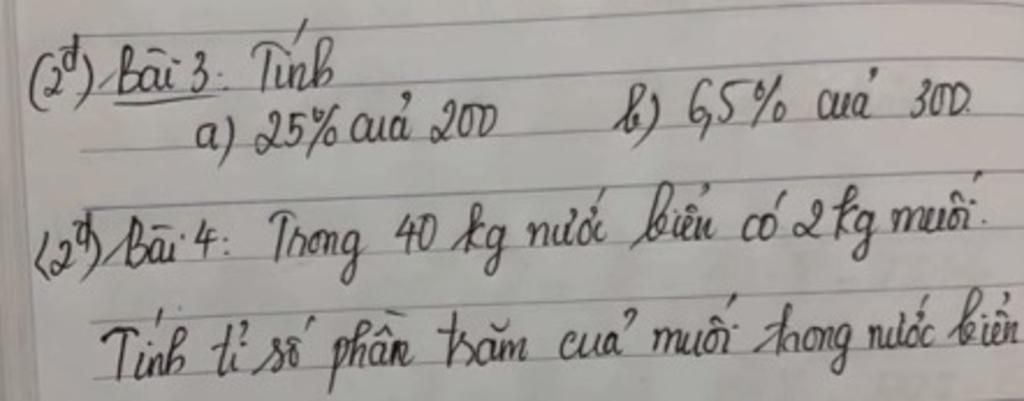 (2đ) Bài 3: Tính
a) 25% của 200 b) 6,5% của 300.
(2đ) Bài 4: Trong 40 kg nước biển có 2 kg muối.
Tính tỉ số phần trăm của muối trong nước biển